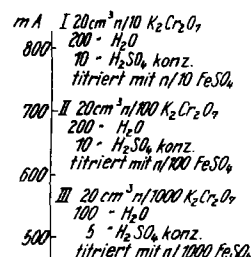 mA I 20cm³ n/10 K₂Cr₂O₇
800 200 " H₂O
10 " H₂SO₄ konz.
titriert mit n/10 FeSO₄
700 II 20cm³ n/100 K₂Cr₂O₇
200 " H₂O
10 " H₂SO₄ konz.
titriert mit n/100 FeSO₄
600
III 20 cm³ n/1000 K₂Cr₂O₇
100 " H₂O
500 5 " H₂SO₄ konz.
titriert mit n/1000 FeSO₄